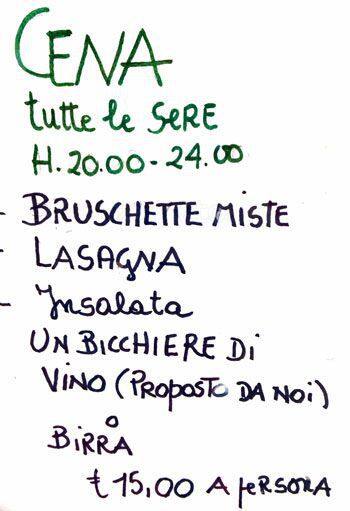 CENA
tutte le SERE
H. 20.00 - 24.00
- BRUSCHETTE MISTE
- LASAGNA
- Insalata
UN BICCHIERE Di
ViNO (PROPOSTO DA NOi)
O
BiRRA
€ 15,00 A PERSONA